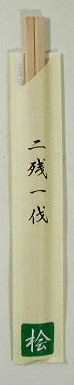 二残一伐
桧